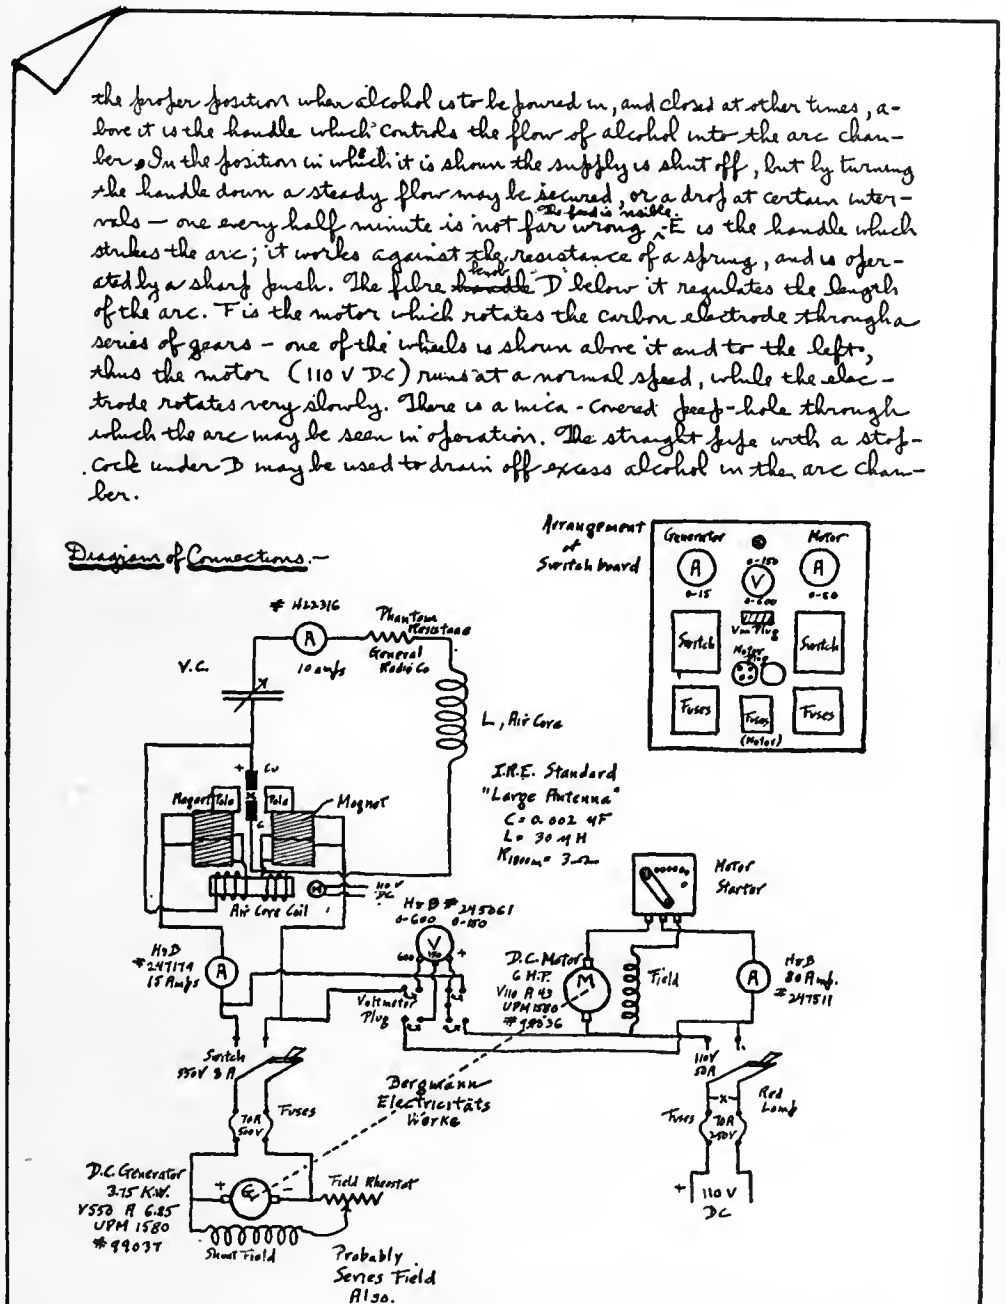 the proper position when alcohol is to be poured in, and closed at other times, a-
bove it is the handle which controls the flow of alcohol into the arc cham-
ber. In the position in which it is shown the supply is shut off, but by turning
the handle down a steady flow may be secured, or a drop at certain inter-
vals — one every half minute is not far wrong. The feed is visible. E is the handle which
strikes the arc; it works against the resistance of a spring, and is oper-
ated by a sharp push. The fibre knob D below it regulates the length
of the arc. F is the motor which rotates the carbon electrode through a
series of gears — one of the wheels is shown above it and to the left,
thus the motor (110 V DC) runs at a normal speed, while the elec-
trode rotates very slowly. There is a mica-covered peep-hole through
which the arc may be seen in operation. The straight pipe with a stop-
cock under D may be used to drain off excess alcohol in the arc cham-
ber.
Arrangement
of
Switchboard
Generator
Motor
A
0-15
0-150
V
0-600
A
0-80
Switch
Vm Plug
Switch
Motor
Plug
Fuses
Fuses
(Motor)
Fuses
Diagram of Connections.—
# H22316
A
10 amps
Phantom
Resistance
General
Radio Co
V.C.
L, Air Core
+ Cu
Magnet
Pole
x
Pole
Magnet
C
I.R.E. Standard
"Large Antenna"
C = 0.002 μF
L = 30 μH
R1800m = 3 Ω
M
110 V
DC
Air Core Coil
Motor
Starter
H&B # 245061
0-600 0-150
V
600
150
+
H&B
# 247179
15 Amps
A
Voltmeter
Plug
D.C. Motor
6 H.P.
V110 A 43
UPM 1580
# 99036
M
Field
A
H&B
80 Amp.
# 247511
Switch
550V 8A
110V
50A
Bergmann
Electricitäts
Werke
Fuses
70A
500V
Red
Lamp
x
Fuses
70A
250V
D.C. Generator
3.75 K.W.
V550 A 6.85
UPM 1580
# 99037
+
G
-
Field Rheostat
Shunt Field
Probably
Series Field
Also.
+
110 V
DC